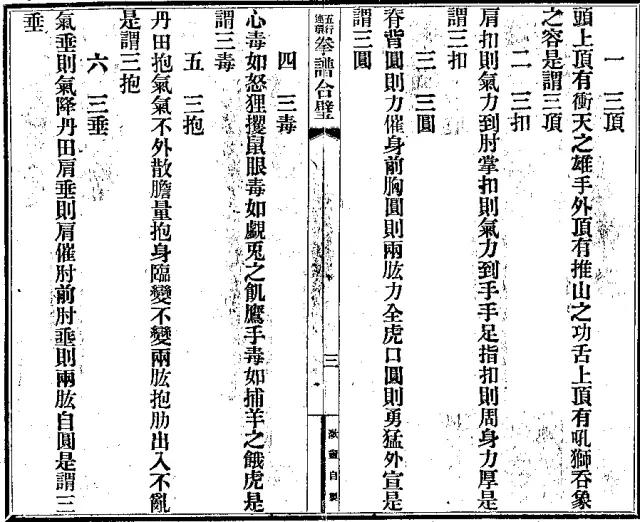 一 三頂
頭上頂有衝天之雄手外頂有推山之功舌上頂有吼獅吞象
之容是謂三頂
二 三扣
肩扣則氣力到肘掌扣則氣力到手手足指扣則周身力厚是
謂三扣
三 三圓
脊背圓則力催身前胸圓則兩肱力全虎口圓則勇猛外宣是
謂三圓
五行連環拳譜合璧
三
四 三毒
心毒如怒狸攫鼠眼毒如覷兎之飢鷹手毒如捕羊之餓虎是
謂三毒
五 三抱
丹田抱氣氣不外散膽量抱身臨變不變兩肱抱肋出入不亂
是謂三抱
六 三垂
氣垂則氣降丹田肩垂則肩催肘前肘垂則兩肱自圓是謂三
垂